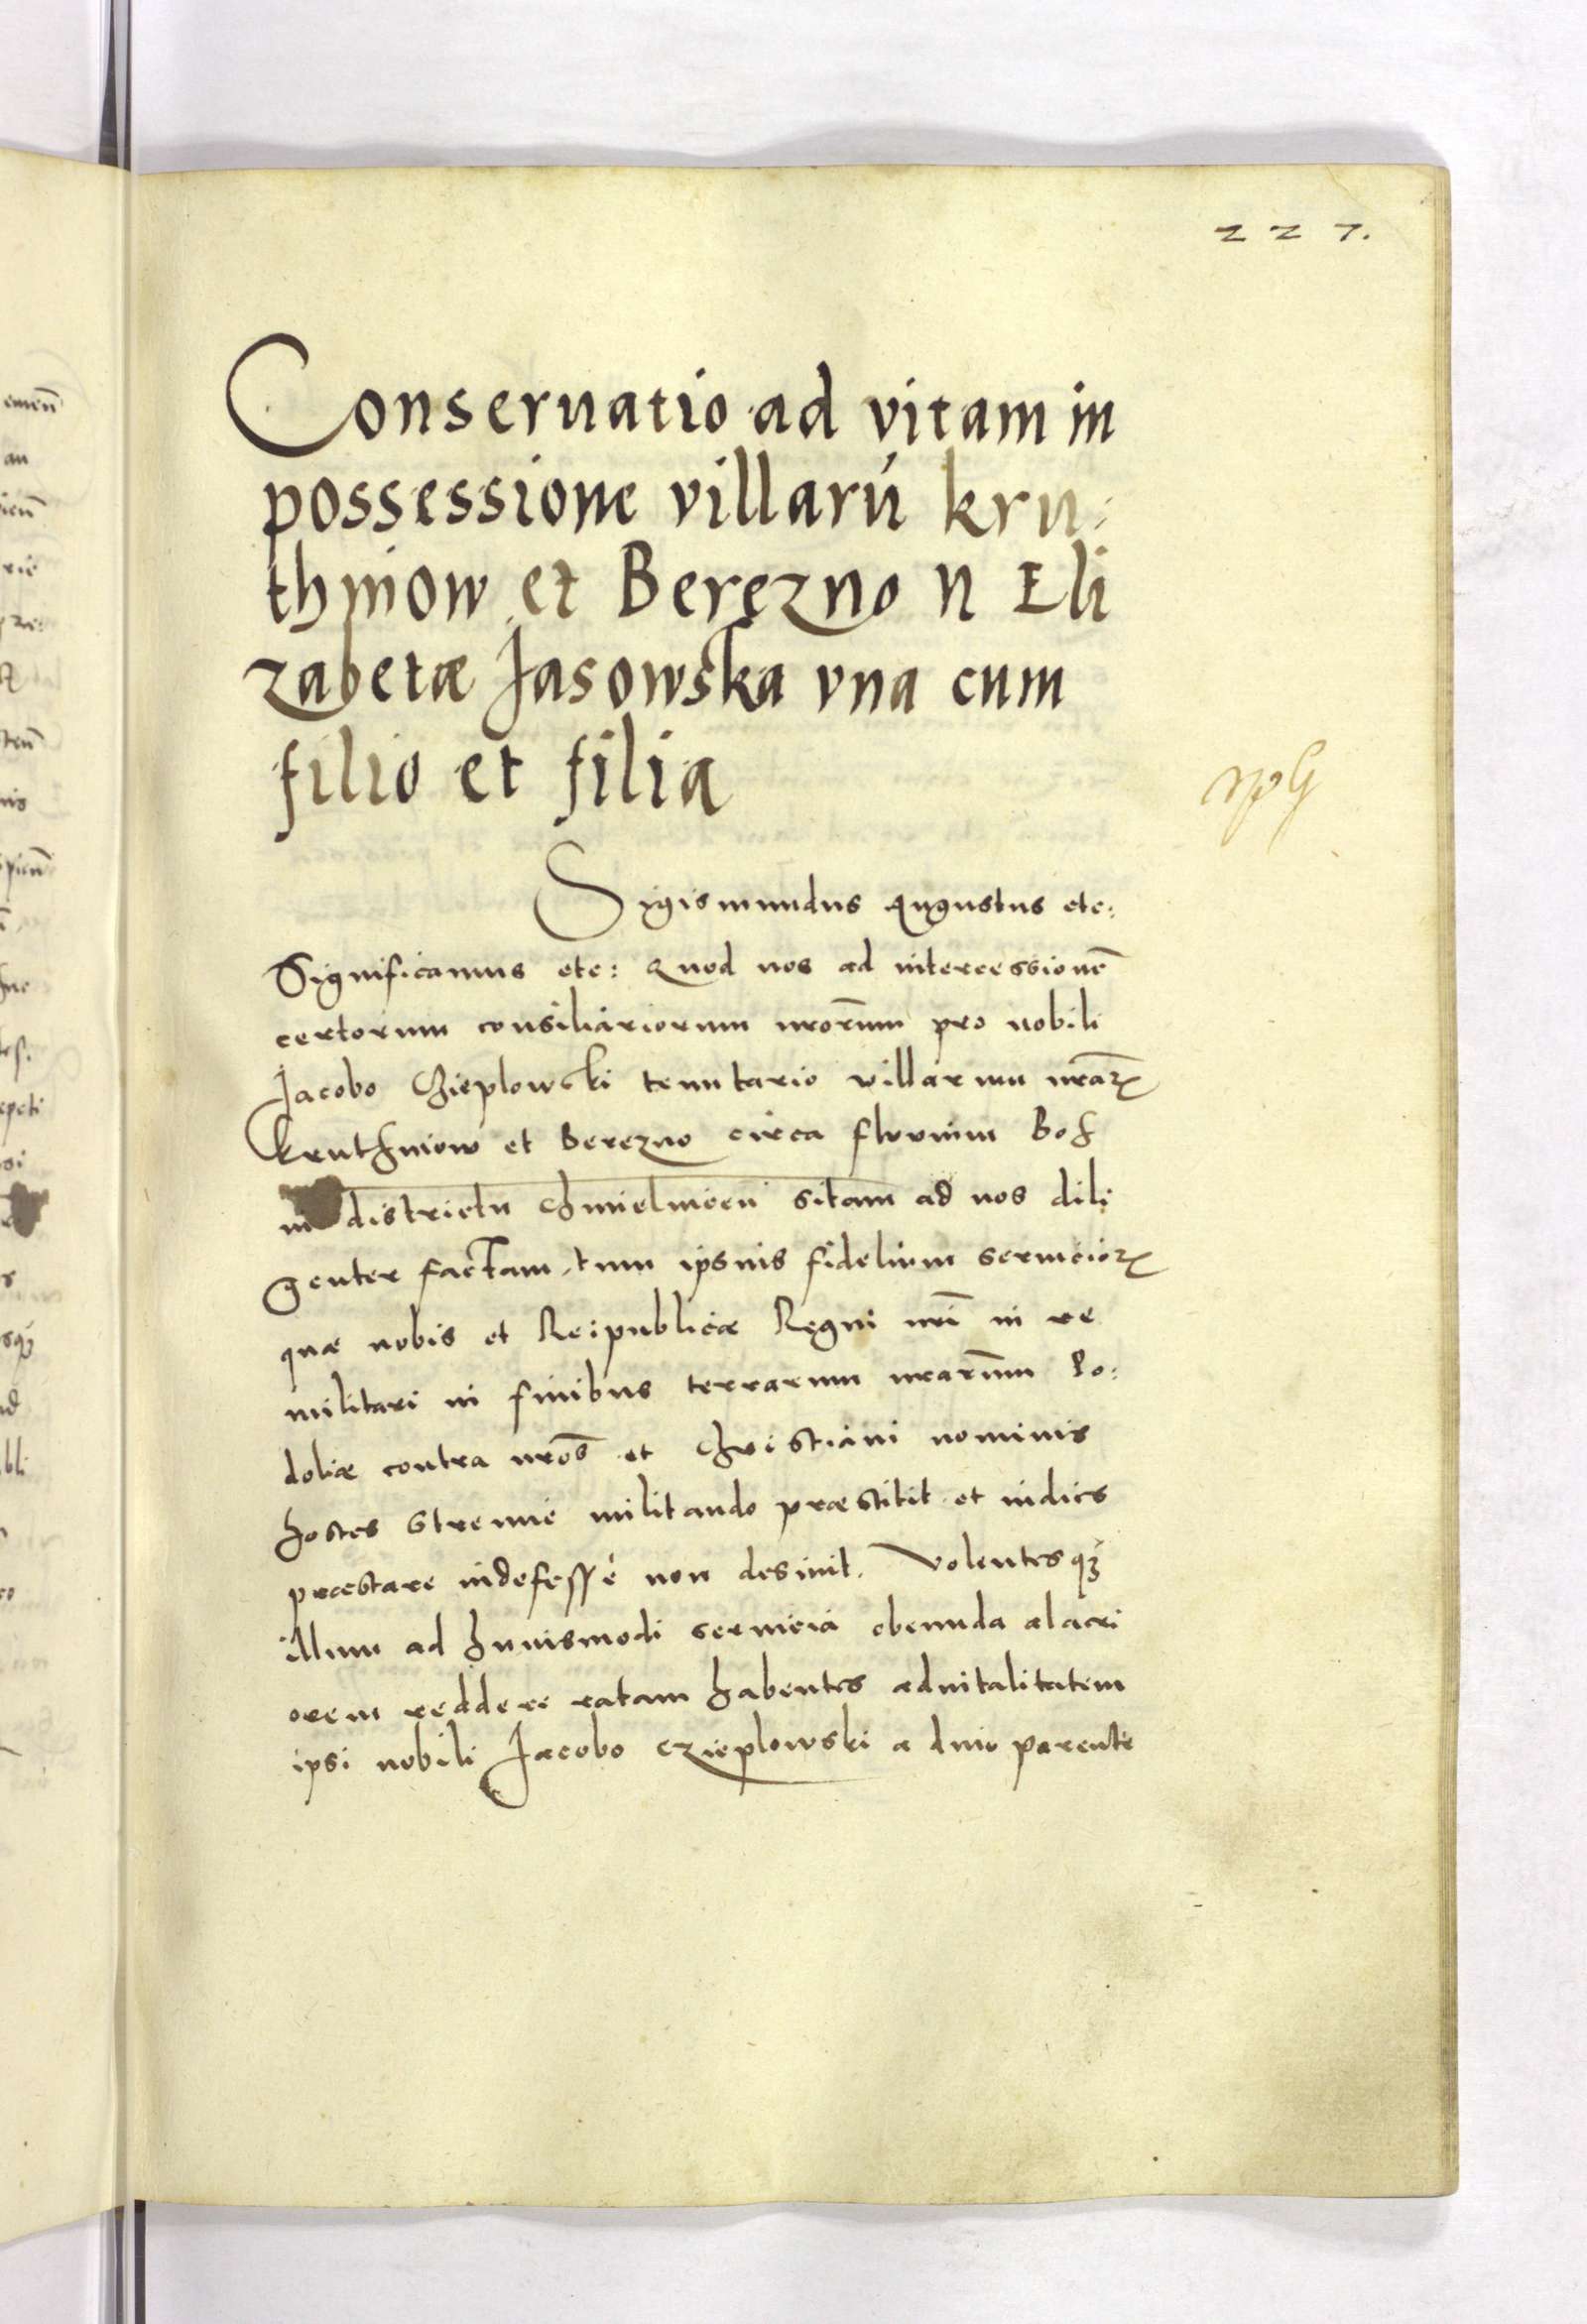 227.
Conseruatio ad vitam in
possessione villarú kru:
thniow et Berezno N Eli
zabetæ Jasowska vna cum
filio et filia
Sigismundus Augustus etc:
Significamus etc: Quod nos ad intercessionē
certorum consiliariorum nrōrum pro nobili
Jacobo Czieplowski tenutario villarum nrāꝝ
Kruthniow et Berezno circa fluuium Boh
in districtu Chmielnicen̄ sitam ad nos dili
genter factam, tum ipsius fidelium seruicioꝝ
quæ nobis et Reipublicæ Regni nrī in re
militari in finibus terrarum nrārum Po:
doliæ contra nrōs et Christiani nominis
hostes strenue militando præstitit et indies
præstare indefessè non desinit. Volentesqꝫ
illum ad huiusmodi seruicia obeunda alacri
orem reddere ratam habentes aduitalitatem
ipsi nobili Jacobo Czieplowski a diuo parente